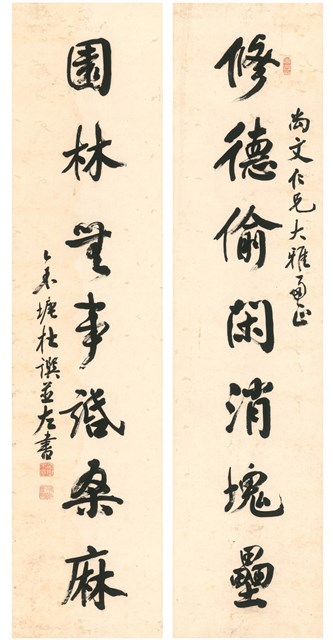 尚文仁兄大雅屬正
修德偷閑消塊壘
園林無事話桑麻
塘杜譔並左書